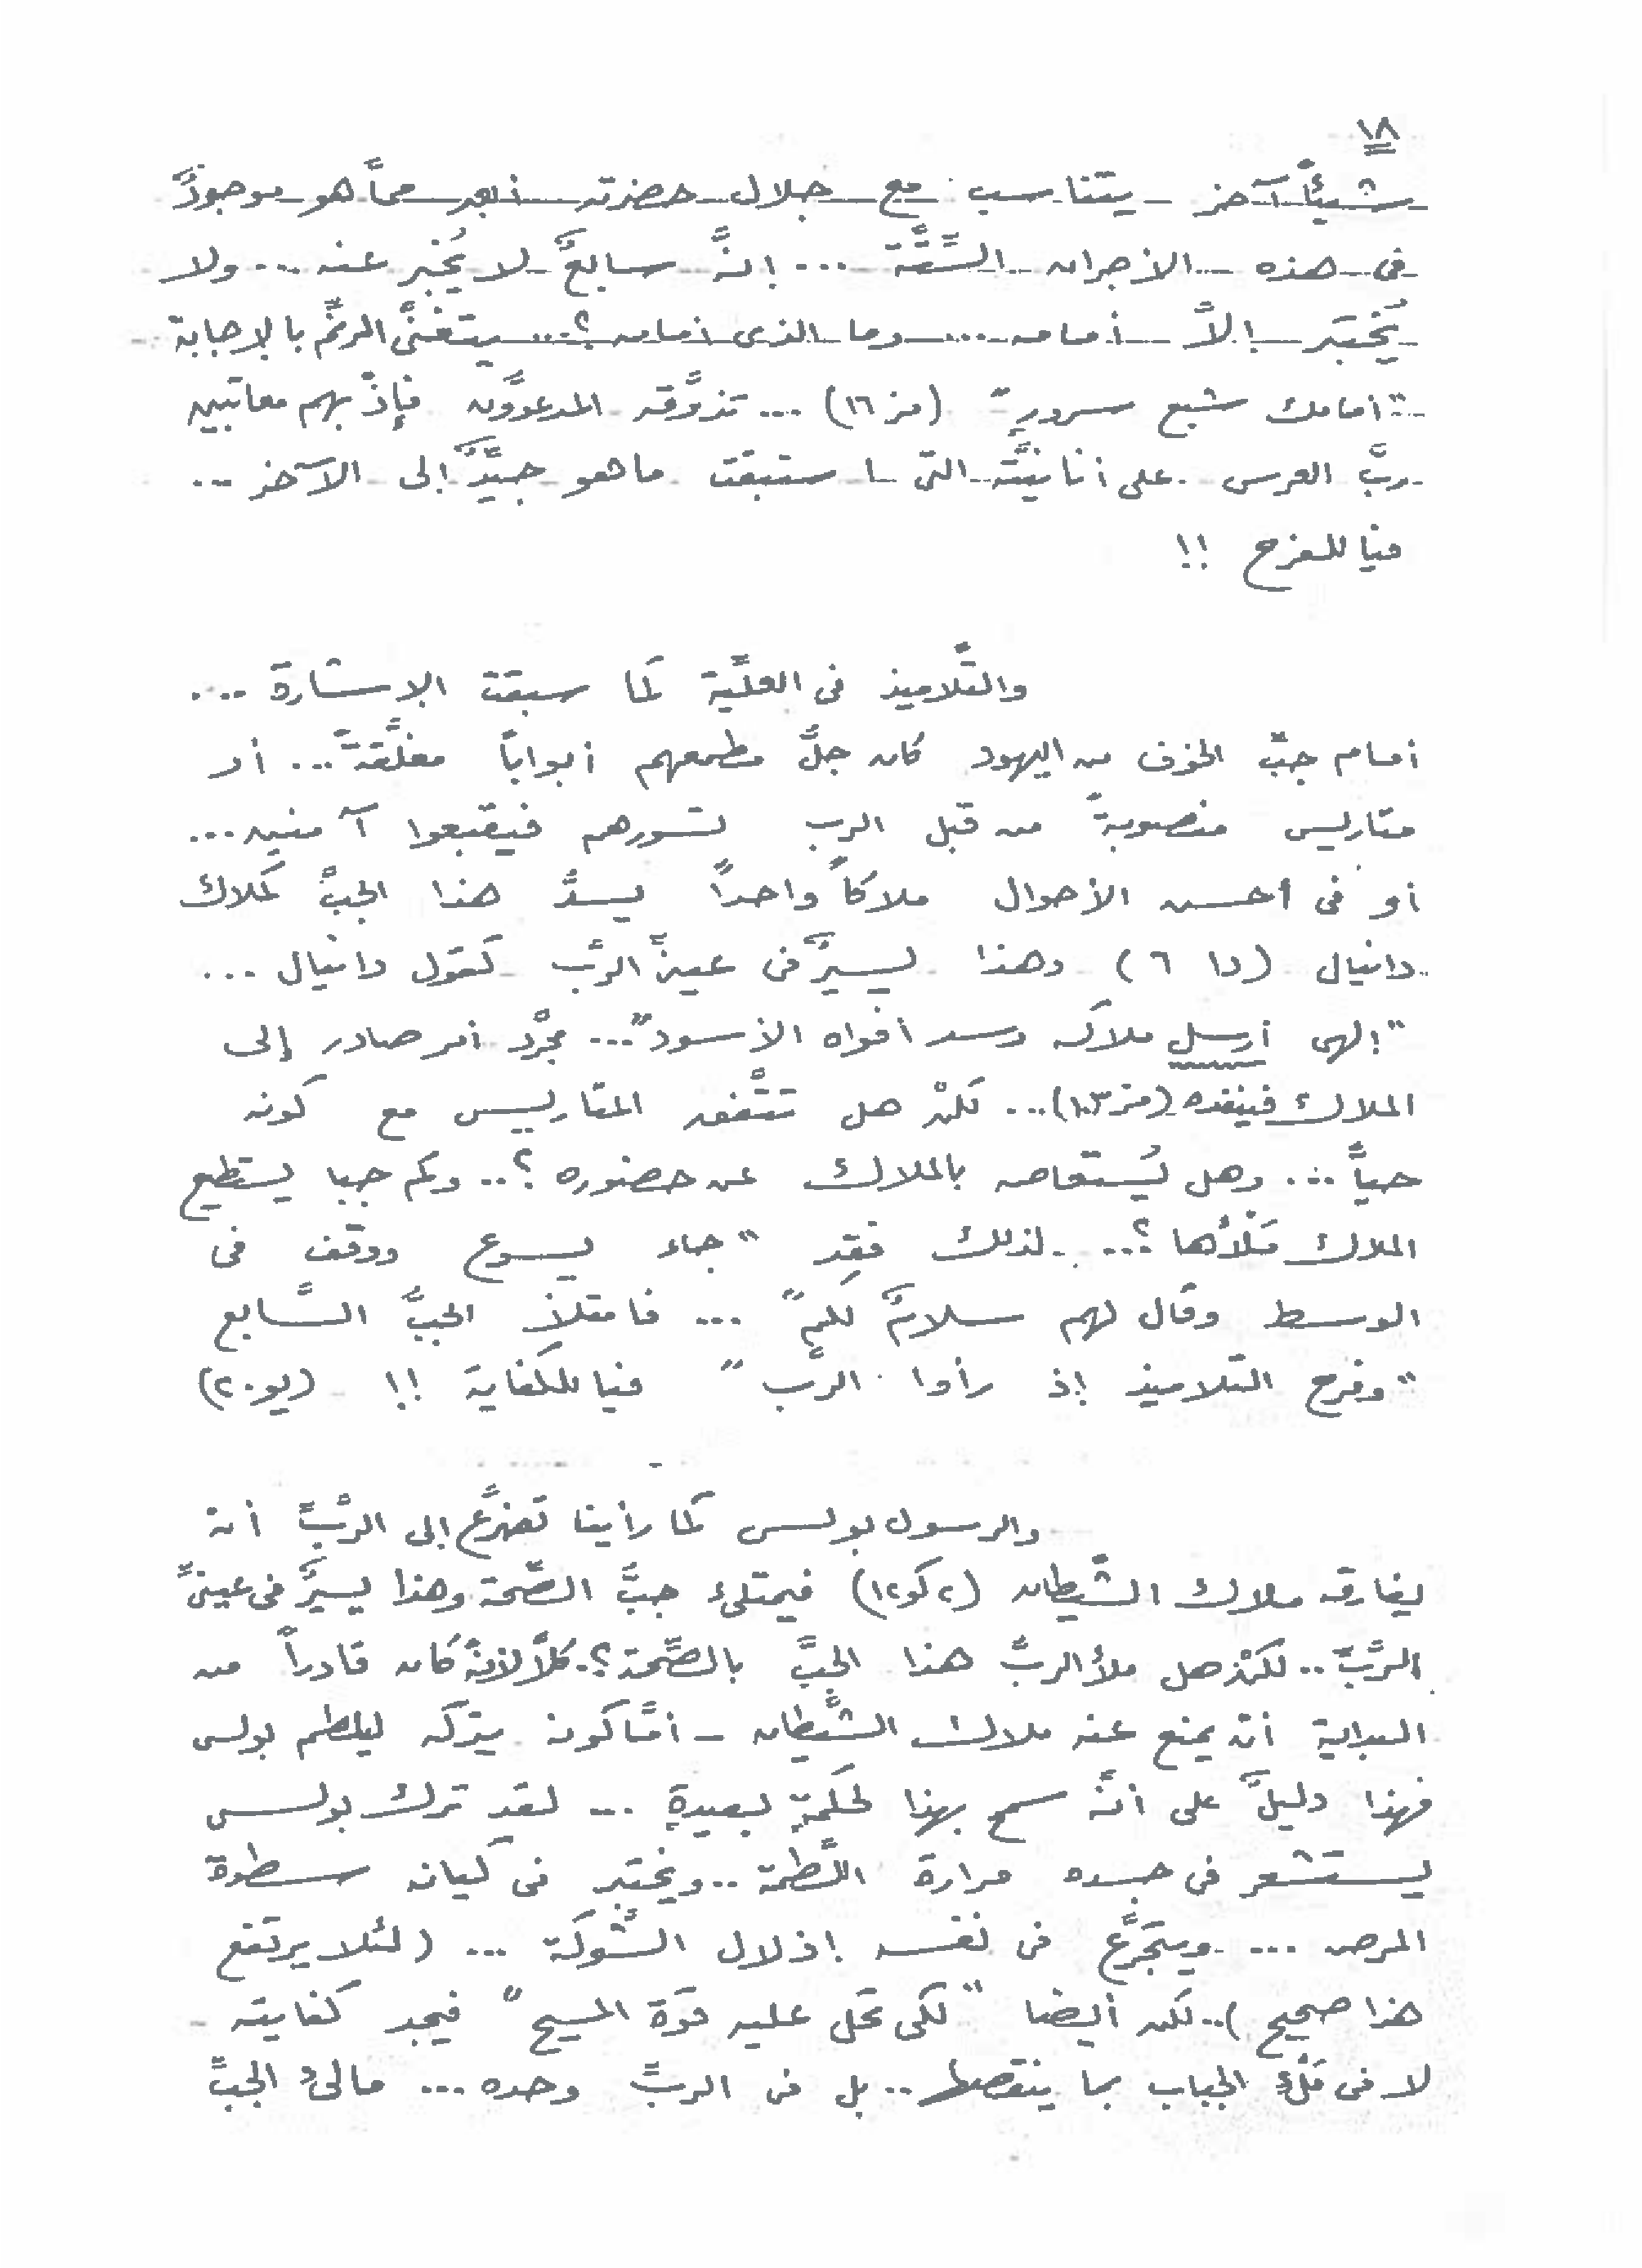 ١٨
شيئاً آخر يتناسب مع جلال حضرته أبعد ممَّا هو موجودٌ
فى هذه الأجران السِّتَّة ... إنَّه سابعٌ لا يُخبر عنه ... ولا
يُختبَر إلاَّ أمامه ... وما الذى أمامه ؟... يتغنَّى المرنِّم بالإجابة
"أمامك شبع سرورٍ" (مز ١٦) ... تذوَّقه المدعوُّون فإذْ بهم معاتبين
ربَّ العرس على أنانيَّته التى استبقت ما هو جيِّدٌ إلى الآخر ..
فيا للفرح !!
والتَّلاميذ فى العلِّيَّة كما سبقت الإشارة ....
أمام جبِّ الخوف من اليهود كان جلُّ مطمعهم أبواباً مغلَّقةً ... أو
متاريس منصوبةً من قبل الرب لتسورهم فيقبعوا آمنين ...
أو فى أحسن الأحوال ملاكاً واحداً يسدُّ هذا الجبَّ كملاك
دانيال (دا ٦) وهذا يسيرٌ فى عينىِّ الرَّب كقول دانيال ...
"إلهى أرسل ملاكه وسد أفواه الأسود" ... مجرَّد أمر صادر إلى
الملاك فينفذه (مز ١٠٣) ... لكنْ هل تتَّفق المتاريس مع كونه
حياً ... وهل يُستعاض بالملاك عن حضوره ؟.. وكم جبا يستطيع
الملاك مَلْأُها ؟... لذلك فقد "جاء يسوع ووقف فى
الوسط وقال لهم سلامٌ لكم" ... فامتلأ الجبُّ السَّابع
"وفرح التلاميذ إذ رأوا الرَّب" فيا للكفاية !! (يو ٢٠)
والرسول بولس كما رأينا تضرَّع إلى الرَّبِّ أن
يفارقه ملاك الشَّيطان (٢كو١٢) فيمتلئ جبُّ الصِّحة وهذا يسيرٌ فى عينىِّ
الرَّبِّ .. لكنْ هل ملأ الربُّ هذا الجبَّ بالصِّحة ؟. كلاَّ لأنَّه كان قادراً من
البداية أن يمنع عنه ملاك الشَّيطان - أمَّا كونه يتركه ليلطم بولس
فهذا دليلٌ على أنَّه سمح بهذا لحكمةٍ بعيدةٍ ... لقد ترك بولس
يستشعر فى جسده مرارة اللَّطمة .. ويختبر فى كيانه سطوة
المرض ... ويتجرَّع فى نفسه إذلال الشَّوكة ... (لئلا يرتفع
هذا صحيح ) .. لكن أيضا "لكى تحل عليه قوَّة المسيح" فيجد كفايته
لا فى مَلْءِ الجباب بما ينقصها .. بل فى الربِّ وحده ... مالئُ الجبِّ